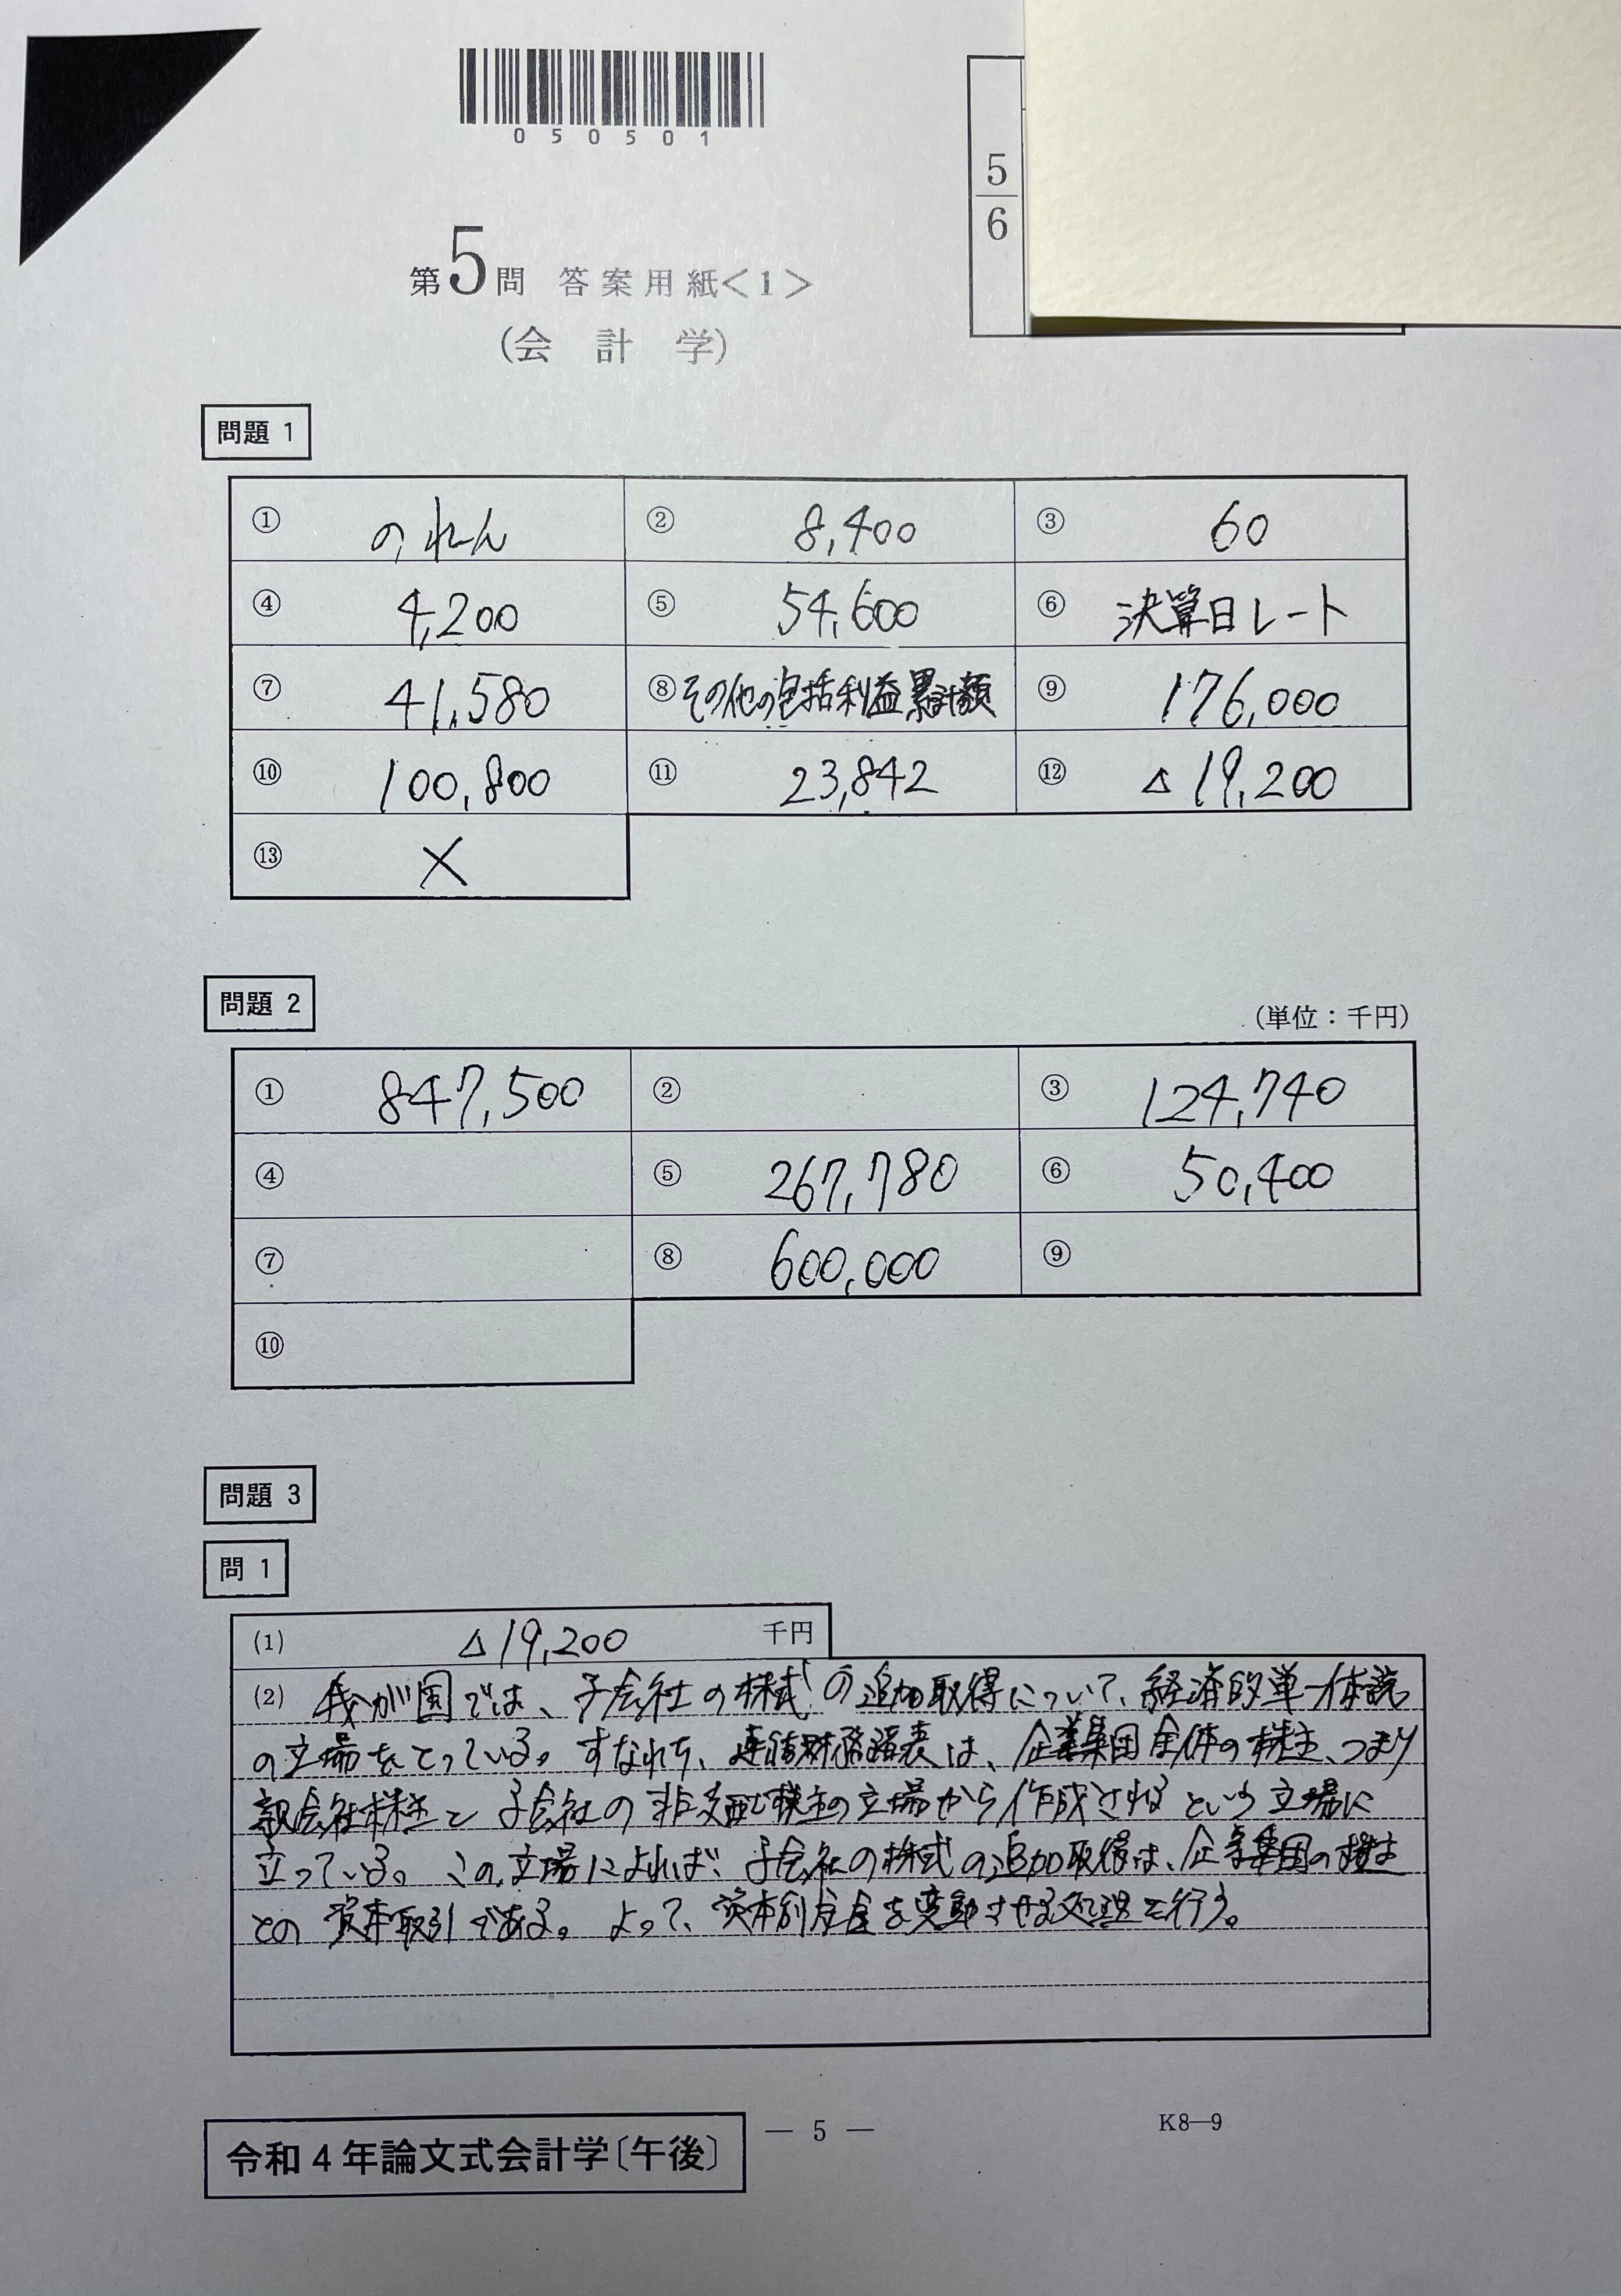 050501
5
6
第5問 答案用紙<1>
(会計学)
問題 1
① のれん ② 8,400 ③ 60
④ 4,200 ⑤ 54,600 ⑥ 決算日レート
⑦ 41,580 ⑧ その他の包括利益累計額 ⑨ 176,000
⑩ 100,800 ⑪ 23,842 ⑫ △19,200
⑬ ×
問題 2
(単位:千円)
① 847,500 ② ③ 124,740
④ ⑤ 267,780 ⑥ 50,400
⑦ ⑧ 600,000 ⑨
⑩
問題 3
問 1
(1) △19,200 千円
(2) 我が国では、子会社の株式の追加取得について、経済的単一体説
の立場をとっている。すなわち、連結財務諸表は、企業集団全体の株主、つまり
親会社株主と子会社の非支配株主の立場から作成されるという立場に
立っている。この立場によれば、子会社の株式の追加取得は、企業集団の株主
との資本取引である。よって、資本剰余金を変動させる処理を行う。
令和4年論文式会計学〔午後〕
― 5 ―
K8―9